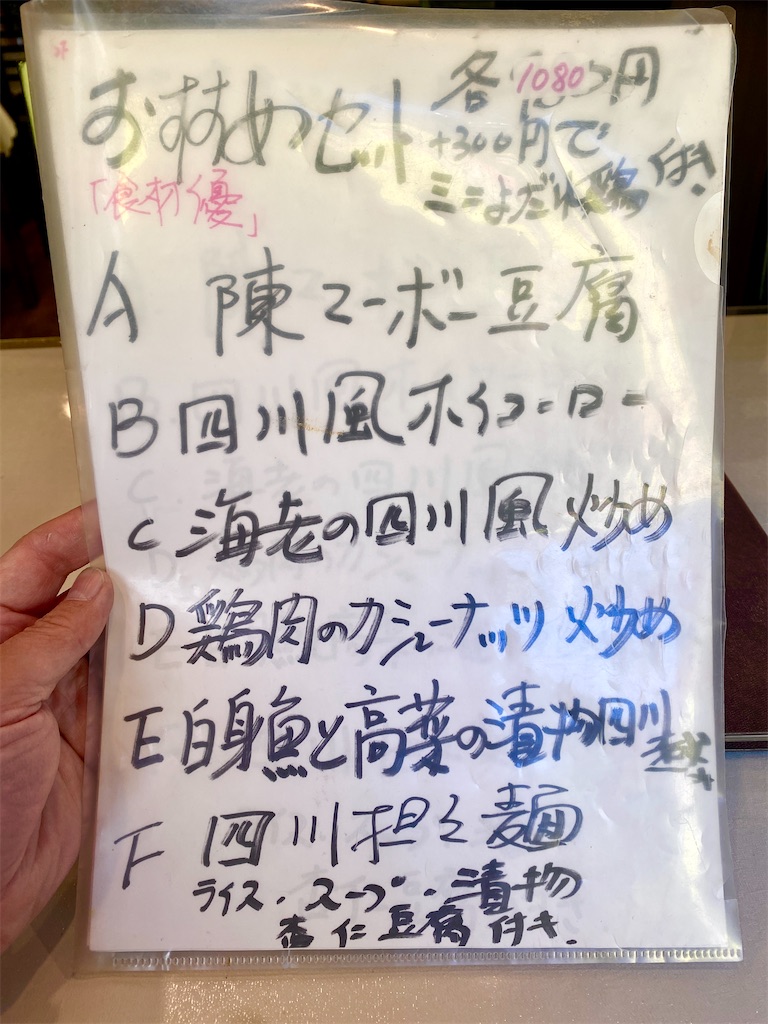 おすすめセット 各1080円
+300円で
ミニよだれ鶏 付き
「食材優」
A 陳マーボー豆腐
B 四川風ホイコーロー
C 海老の四川風炒め
D 鶏肉のカシューナッツ炒め
E 白身魚と高菜の漬物四川
F 四川担々麺
ライス・スープ・漬物
杏仁豆腐 付き.